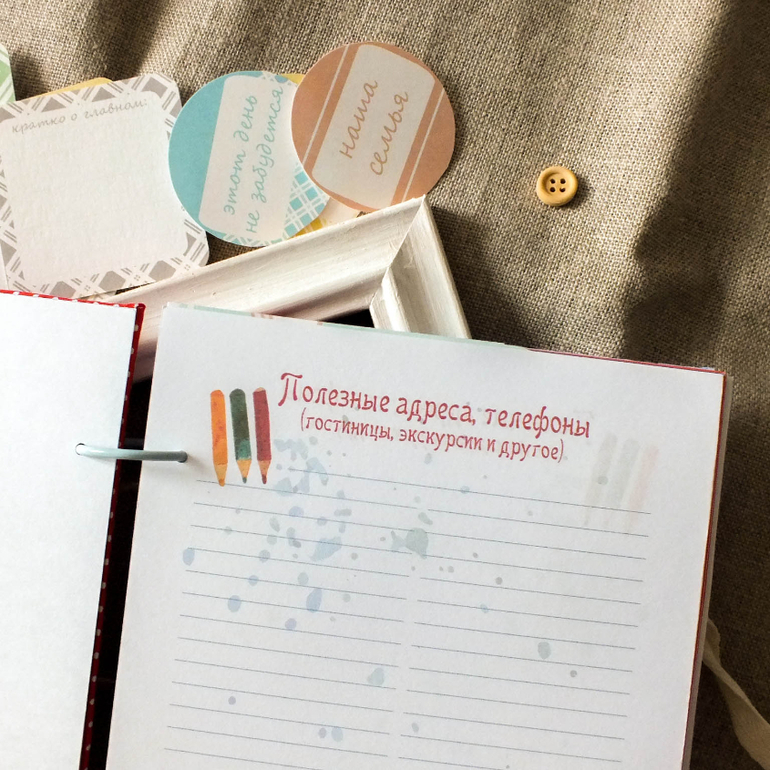 кратко о главном:
этот день
не забудется
наша
семья
Полезные адреса, телефоны
(гостиницы, экскурсии и другое)